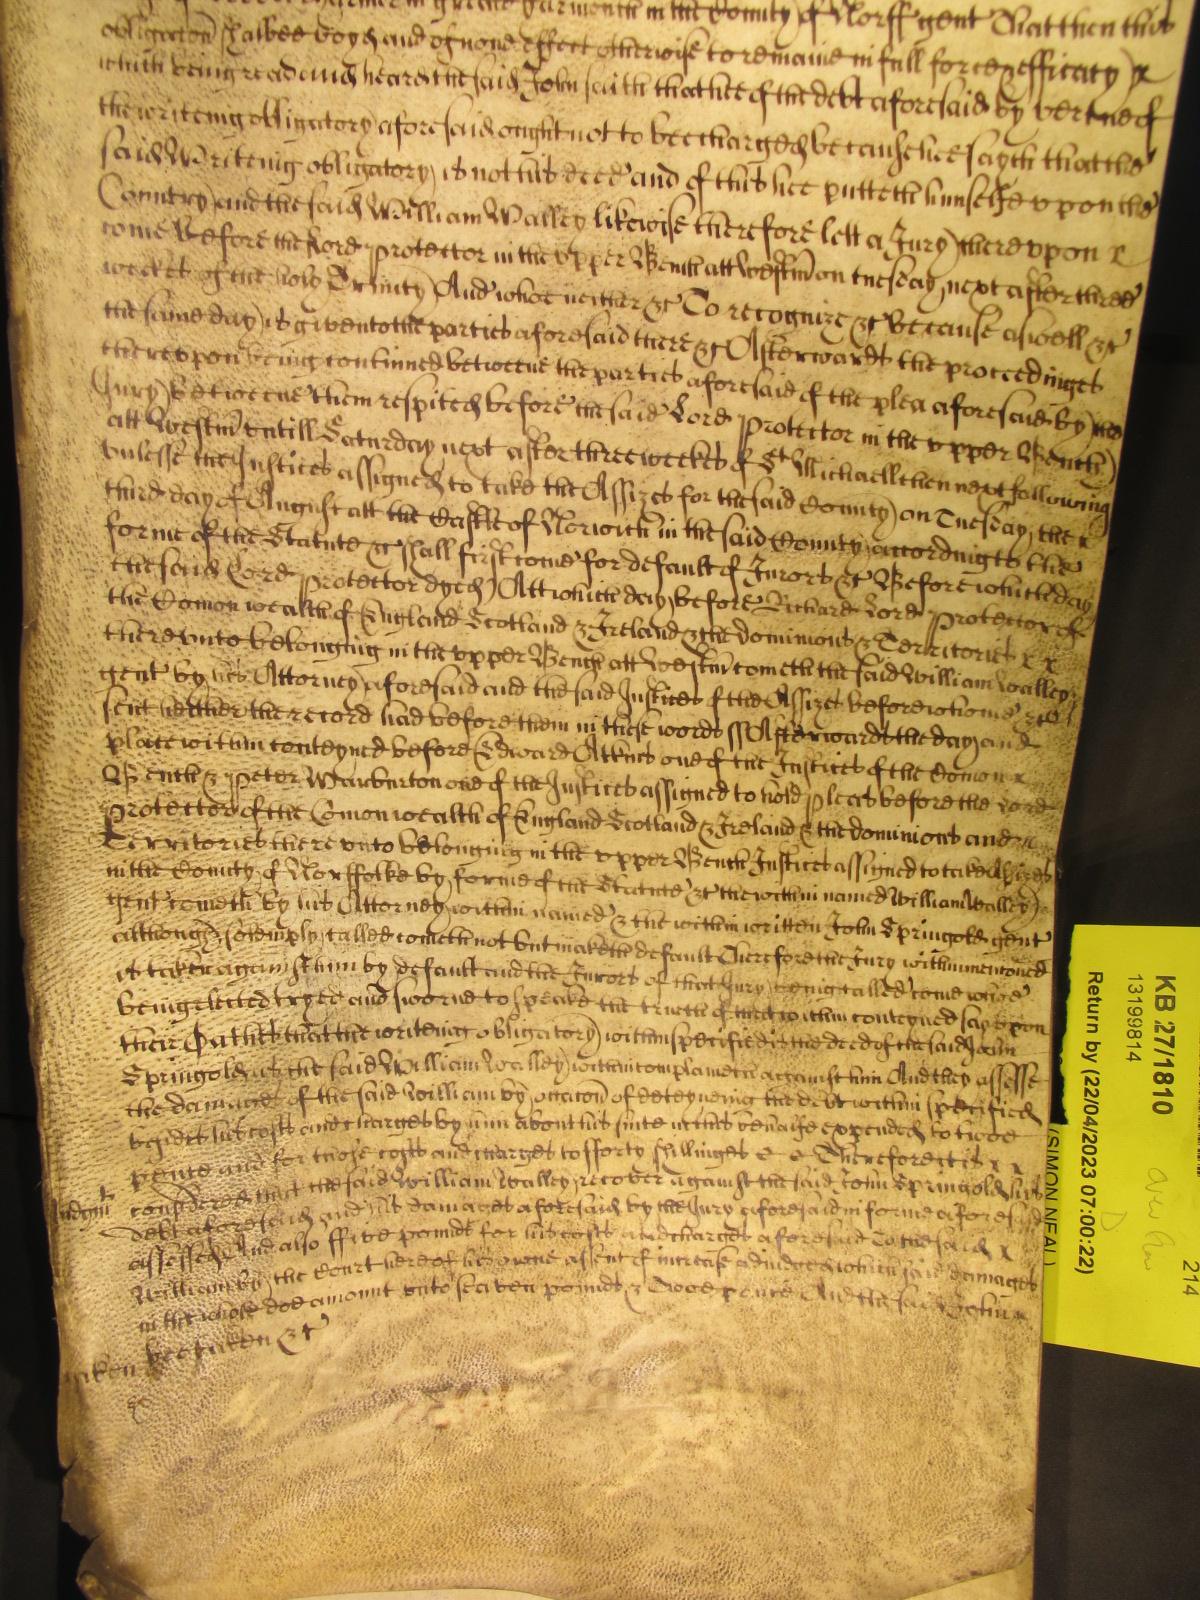 in greate yarmouth in the County of Norff gent That then this
obligacon shalbee voyd and of none effect otherwise to remaine in full force & efficacy x
which being read and heard the said John saith that hee of the debt aforesaid by vertue of
the writeing obligatory aforesaid ought not to bee charged because hee sayth that the
said Writeing obligatory is not his deed and of this hee putteth himselfe vpon the
Country and the said William Walley likewise therefore lett a Jury therevpon x
come before the Lord Protector in the vpper Bench att Westm on tuesday next after three
weekes of the holy Trinity And whoe neither &c To recognize &c because aswell &c
the same day is given to the parties aforesaid there &c Afterwards the proceedinges
therevpon being continued betweene the parties aforesaid of the plea aforesaid by the
Jury betweene them respited before the said Lord Protector in the vpper Bench
att Westm vntill Saturday next after three weekes of St Michaell then next following
vnlesse the Justices assigned to take the Assizes for the said County on Tuesday the x
third day of August att the Castle of Norwich in the said County according to the
forme of the Statute &c shall first come for default of Jurors &c Before which day
the said Lord Protector dyed Att which day before Richard Lord Protector of
the Comonwealth of England Scotland & Ireland & the dominions & Territories x x
therevnto belonging in the vpper Bench att Westm cometh the said William Walley
gent by his Attorney aforesaid and the said Justices of the Assizes before whome &c
sent hether the record had before them in these words ss Afterwards the day and
place within conteyned before Edward Atkins one of the Justices of the Comon x
Bench & Peter Warburton one of the Justices assigned to hold pleas before the Lord
Protector of the Comonwealth of England Scotland & Ireland & the dominions and
Territories there vnto belonging in the vpper Bench Justices assigned to take Assizes
in the County of Norffolke by forme of the Statute &c the within named William Walley
gent cometh by his Attorney within named & the within written John Springold gent
although solemply called cometh not but maketh default Therefore the Jury within mentioned
is taken against him by default and the Jurors of that Jury being called come whoe
being elected tryed and sworne to speake the truth of the within conteyned say vpon
their Oathes that the writeing obligatory within specified is the deed of the said John
Springold as the said William Walley within complaineth against him And they assesse
the damages of the said William by occacon of deteyneing the debt within specified
besides his costs and charges by him about his suite in this behalfe expended to twoe
pence and for those costs and charges to fforty shillinges Therefore it is x x
Judgmt
considered that the said William Walley recover against the said John Springold his
debt aforesaid and his damages aforesaid by the Jury aforesaid in forme aforesaid
assessed And also ffive pounds for his costs and charges aforesaid To the said x
William by the Court hereof his owne assent of increase adiudged which said damages
in the whole doe amount vnto seaven pounds & Twoe pence And the said John
bee taken &c
KB 27/1810
13199814
Return by (22/04/2023 07:00:22)
(SIMON NEAL)
214